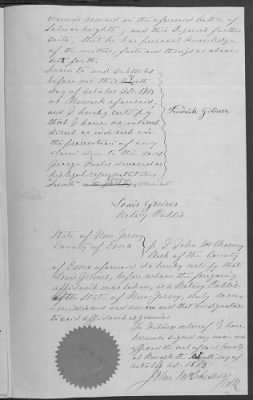 wounds received in the aforesaid battle of
and this deponent further
saith, that he has personal knowledge
of the matters, facts and things as above
set forth.
Sworn to and subscribed
before me this
day of October A.D. 1863
at Newark aforesaid,
and I hereby certify
that I have no interest
direct or indirect in
the prosecution of any
claim due to the said
George
legal representatives
Louis Greiner
Notary Public
State of New Jersey
County of Essex
I John McChesney
Clerk of the County
of Essex aforesaid do hereby certify that
Louis Greiner, before whom the foregoing
affidavit was taken, is a Notary Public
of the State of New Jersey, duly com
missioned and sworn and that the signature
to said affidavit is genuine
In Witness whereof I have
hereunto signed my name and
affixed the seal of said County
at Newark the day of
October A.D. 1863
Clk